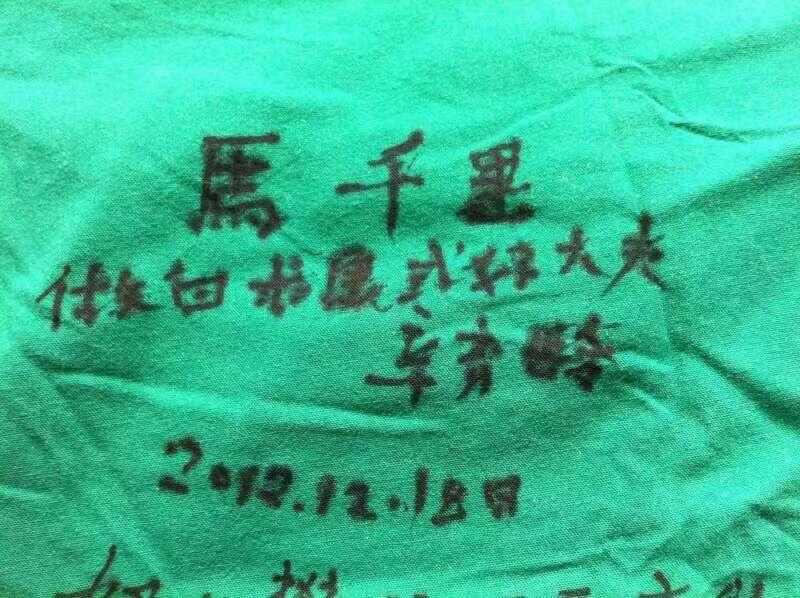 馬千里
做白求恩式好大夫
辛育龄
2012.12.18日